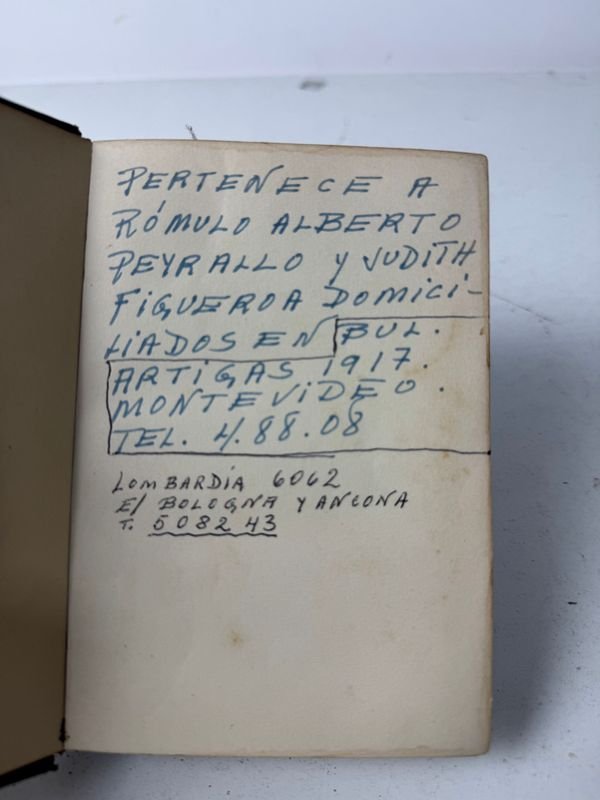 PERTENECE A
RÓMULO ALBERTO
PEYRALLO Y JUDITH
FIGUEROA DOMICI-
LIADOS EN BUL.
ARTIGAS 1917.
MONTEVIDEO.
TEL. 4.88.08
LOMBARDÍA 6062
E/ BOLOGNA Y ANCONA
T. 508243